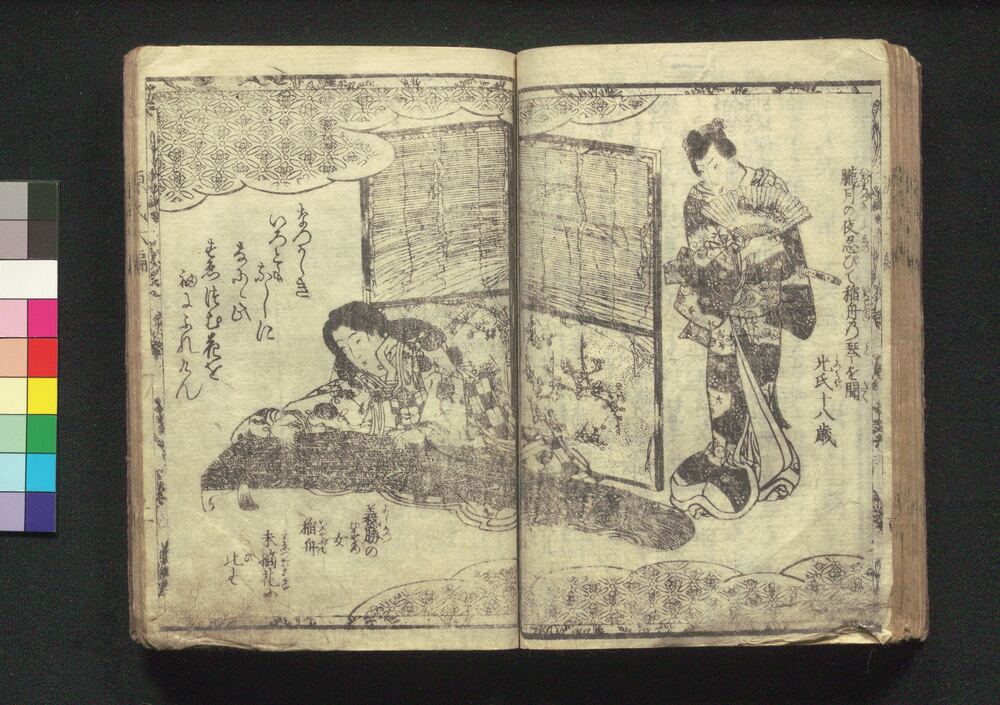 朧月の夜忍びて稲舟の琴を聞
光氏十八歳
なつかしき
いろとも
なしに
なにに此
すゑつむ花を
袖にふれけん
義勝の
女
稲舟
末摘花に
比す